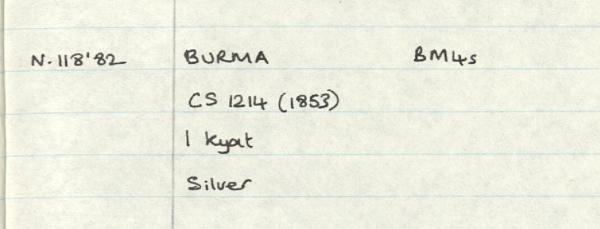 N.118'82 BURMA BM4s
CS 1214 (1853)
1 kyat
Silver